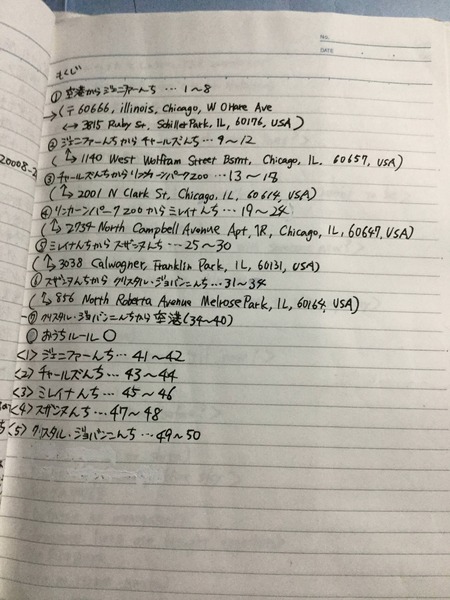 NO.
DATE
もくじ
① 空港からジェニファーんち … 1〜8
→(〒60666, illinois, Chicago, W OHare Ave
↔ 3815 Ruby St, Schiller Park, IL, 60176, USA)
② ジェニファーんちからチャールズんち … 9〜12
(↳ 1140 West Wolfram Street Bsmt, Chicago, IL, 60657, USA)
③ チャールズんちからリンカーンパークZOO … 13〜18
(↳ 2001 N Clark St, Chicago, IL, 60614, USA)
④ リンカーンパークZOOからミレイナんち … 19〜24
(↳ 2754 North Campbell Avenue Apt, 1R, Chicago, IL, 60647, USA)
⑤ ミレイナんちからスザンヌんち … 25〜30
(↳ 3038 Calwagner, Franklin Park, IL, 60131, USA)
⑥ スザンヌんちからクリスタル・ジョパンニんち … 31〜34
(↳ 856 North Roberta Avenue Melrose Park, IL, 60164, USA)
⑦ クリスタル・ジョパンニんちから空港(34〜40)
◎ おうちルール ○
<1> ジェニファーんち … 41〜42
<2> チャールズんち … 43〜44
<3> ミレイナんち … 45〜46
<4> スザンヌんち … 47〜48
<5> クリスタル・ジョパンニんち … 49〜50